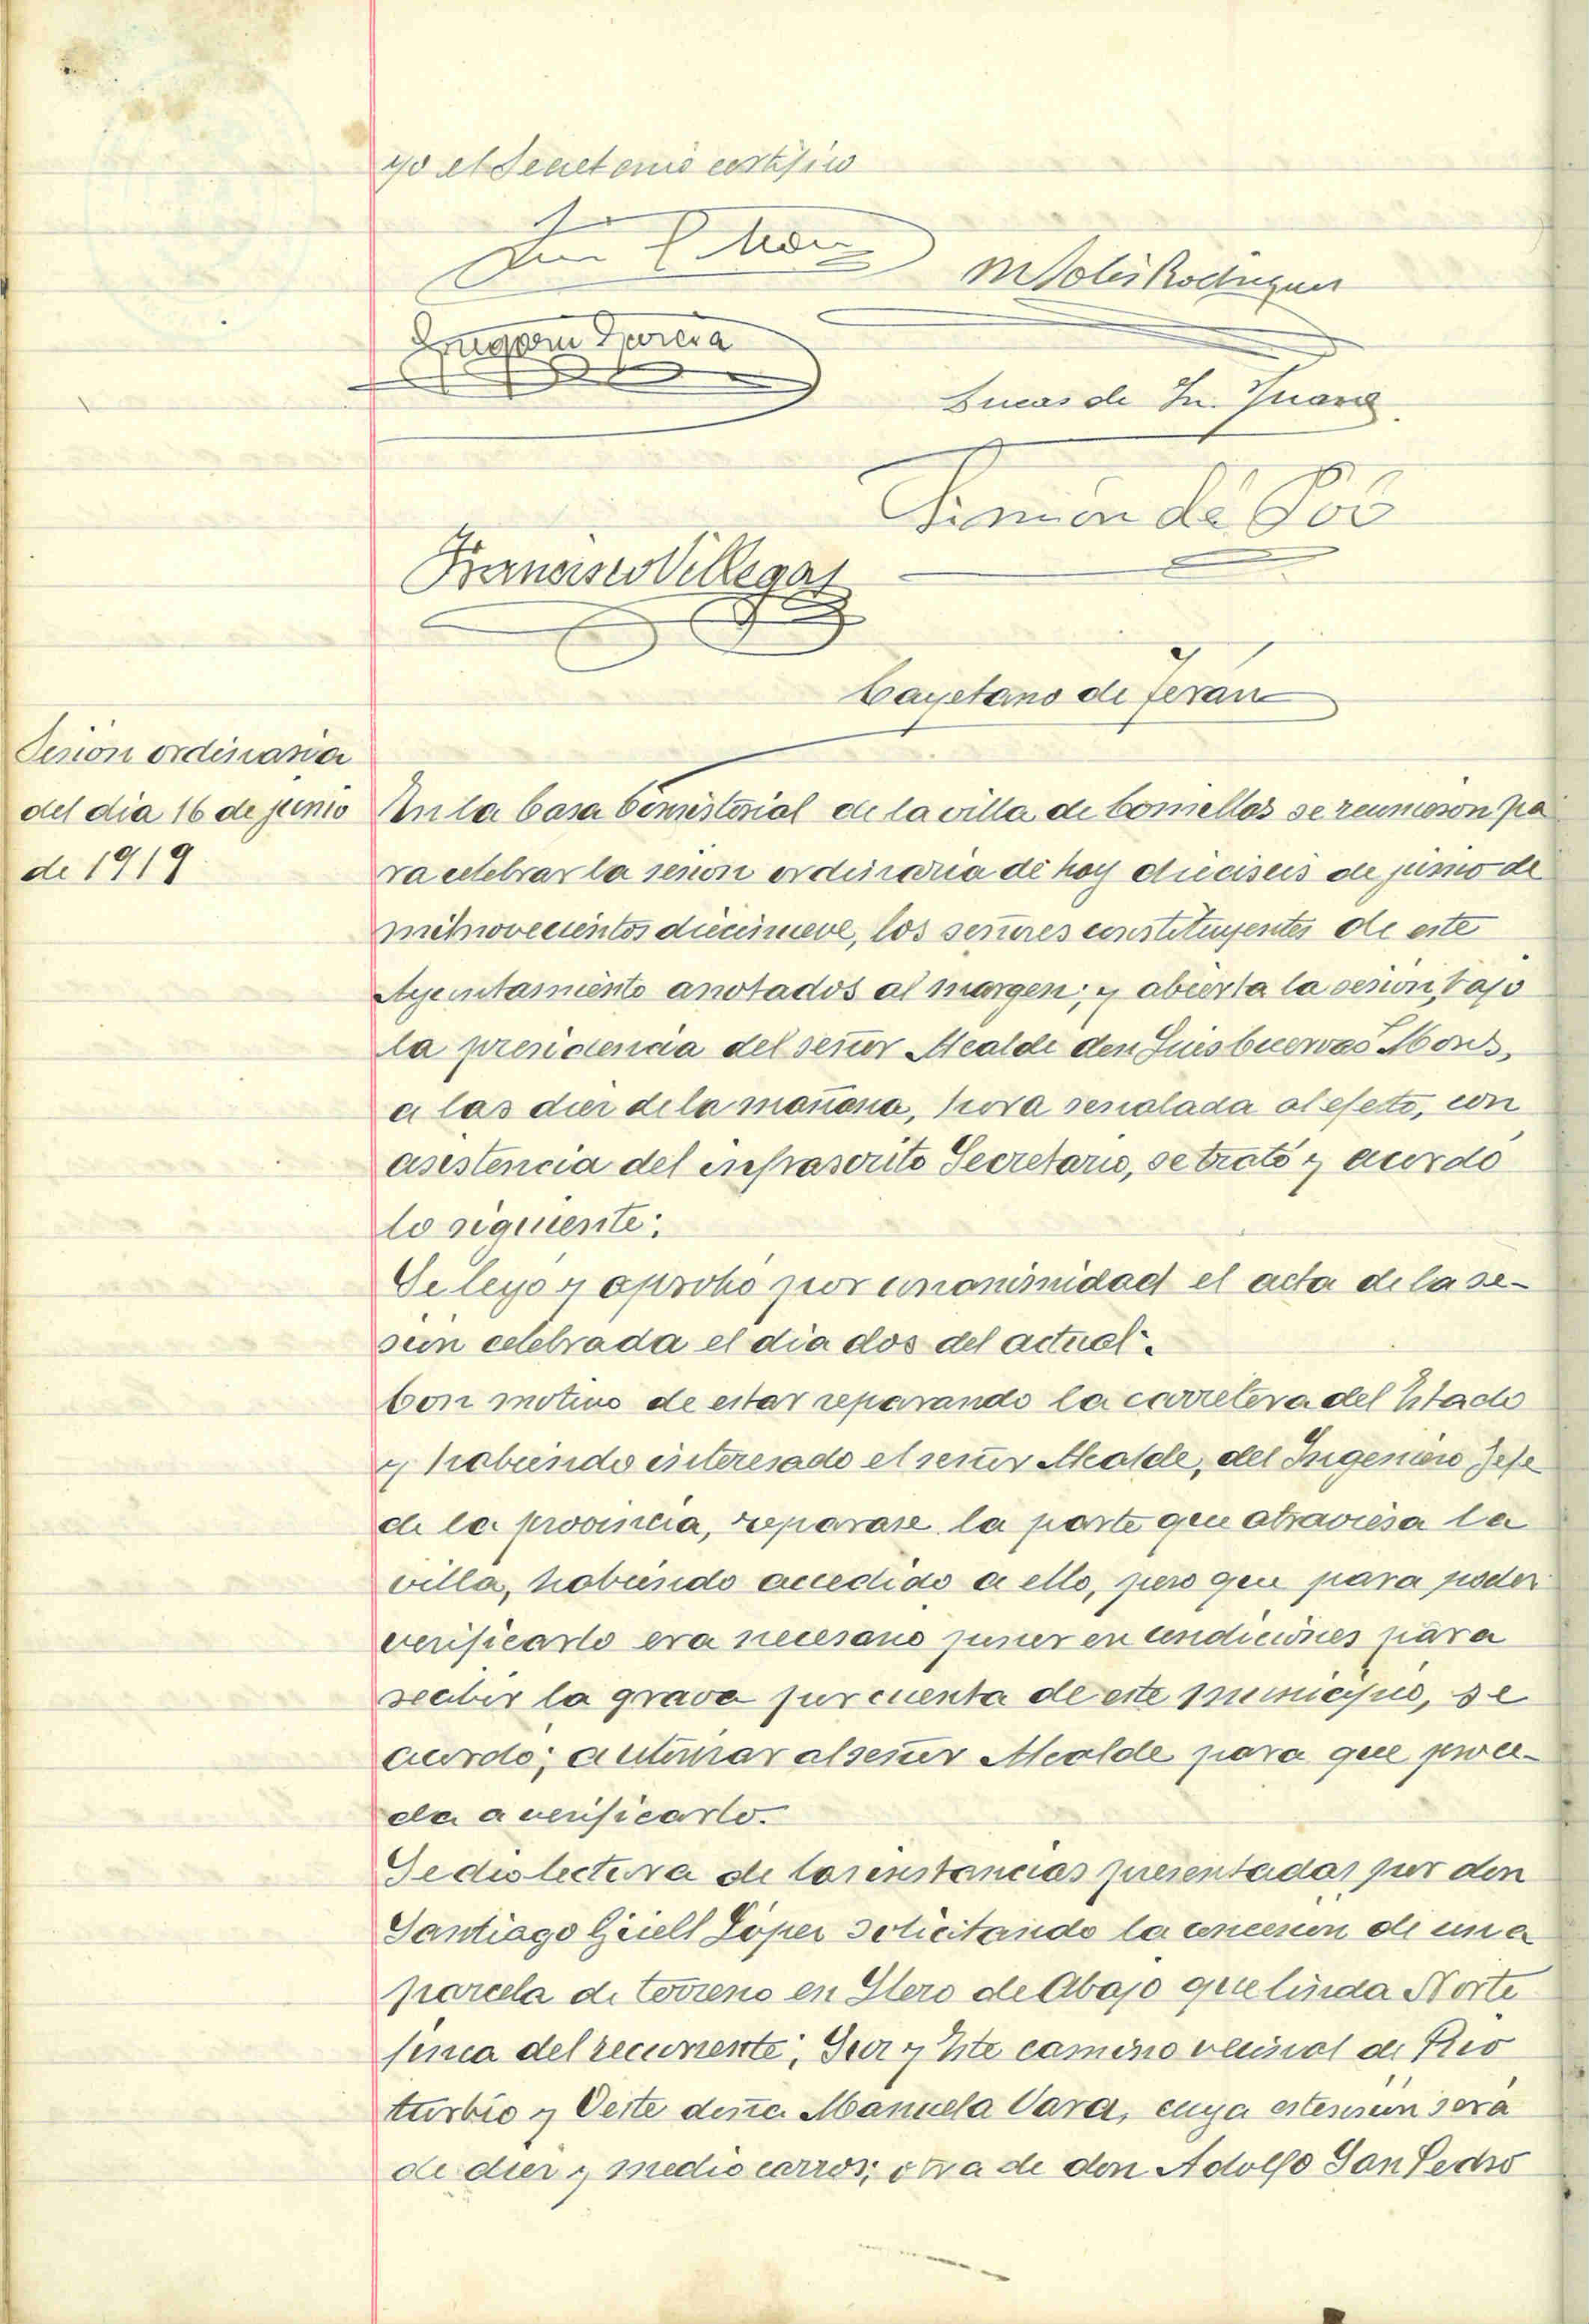 yo el Secretario certifico
M Solis Rodriguez
Gregorio Garcia
Lucas de Sn. Juan
Simón de Poó
Francisco Villegas
Cayetano de Terán
Sesión ordinaria
del dia 16 de junio
de 1919
En la Casa Consistorial de la villa de Comillas se reunieron pa
ra celebrar la sesion ordinaria de hoy dieciseis de junio de
mil novecientos diecinueve, los señores constituyentes de este
Ayuntamiento anotados al margen; y abierta la sesion, bajo
la presidencia del señor Alcalde don Luis Cuervas Mons,
a las diez de la mañana, hora senalada al efecto, con
asistencia del infrascrito Secretario, se trató y acordó
lo siguiente:
Se leyó y aprobó por unanimidad el acta de la se-
sion celebrada el dia dos del actual.
Con motivo de estar reparando la carretera del Estado
y habiendo interesado el señor Alcalde, del Ingeniero Jefe
de la provincia, reparase la parte que atraviesa la
villa, habiendo accedido a ello, pero que para poder
verificarlo era necesario poner en condiciones para
recibir la grava por cuenta de este municipio, se
acordó; autorizar al señor Alcalde para que proce-
da a verificarlo.
Se dio lectura de las instancias presentadas por don
Santiago Güell López solicitando la concesion de una
parcela de terreno en Llero de Abajo que linda Norte
finca del recurrente; Sur y Este camino vecinal de Rio
turbio y Oeste doña Manuela Vara, cuya estension será
de diez y medio carros; otra de don Adolfo San Pedro